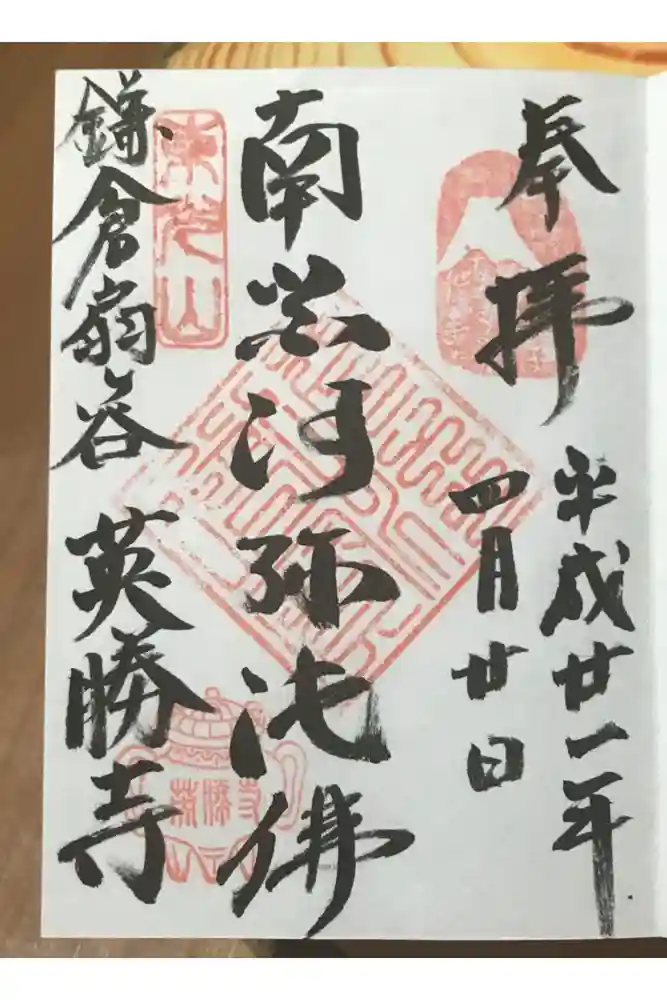 奉拝
平成廿一年
四月廿日
南無阿弥陀佛
東光山
鎌倉扇ヶ谷 英勝寺
英勝寺